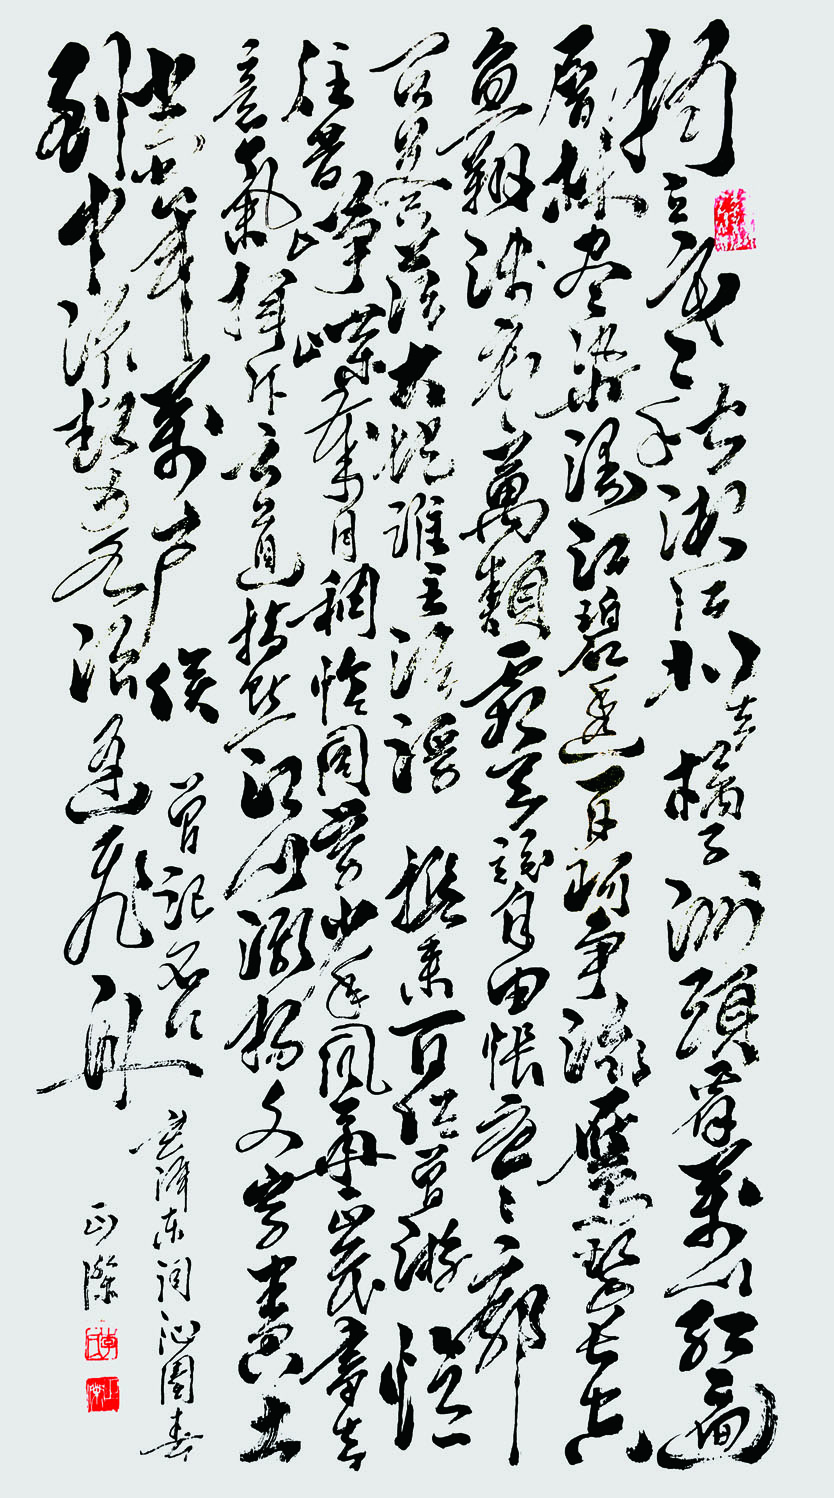 獨立寒秋湘江北去橘子洲頭看萬山紅遍
層林盡染漫江碧透百舸争流鷹擊長空
魚翔淺底萬類霜天競自由悵寥廓
問蒼茫大地誰主沉浮 攜來百侣曾游憶
往昔崢嶸歲月稠恰同學少年風華正茂書生
意氣揮斥方遒指點江山激揚文字糞土
當年萬户侯 曾記否
到中流擊水浪遏飛舟
毛澤東詞沁園春
正